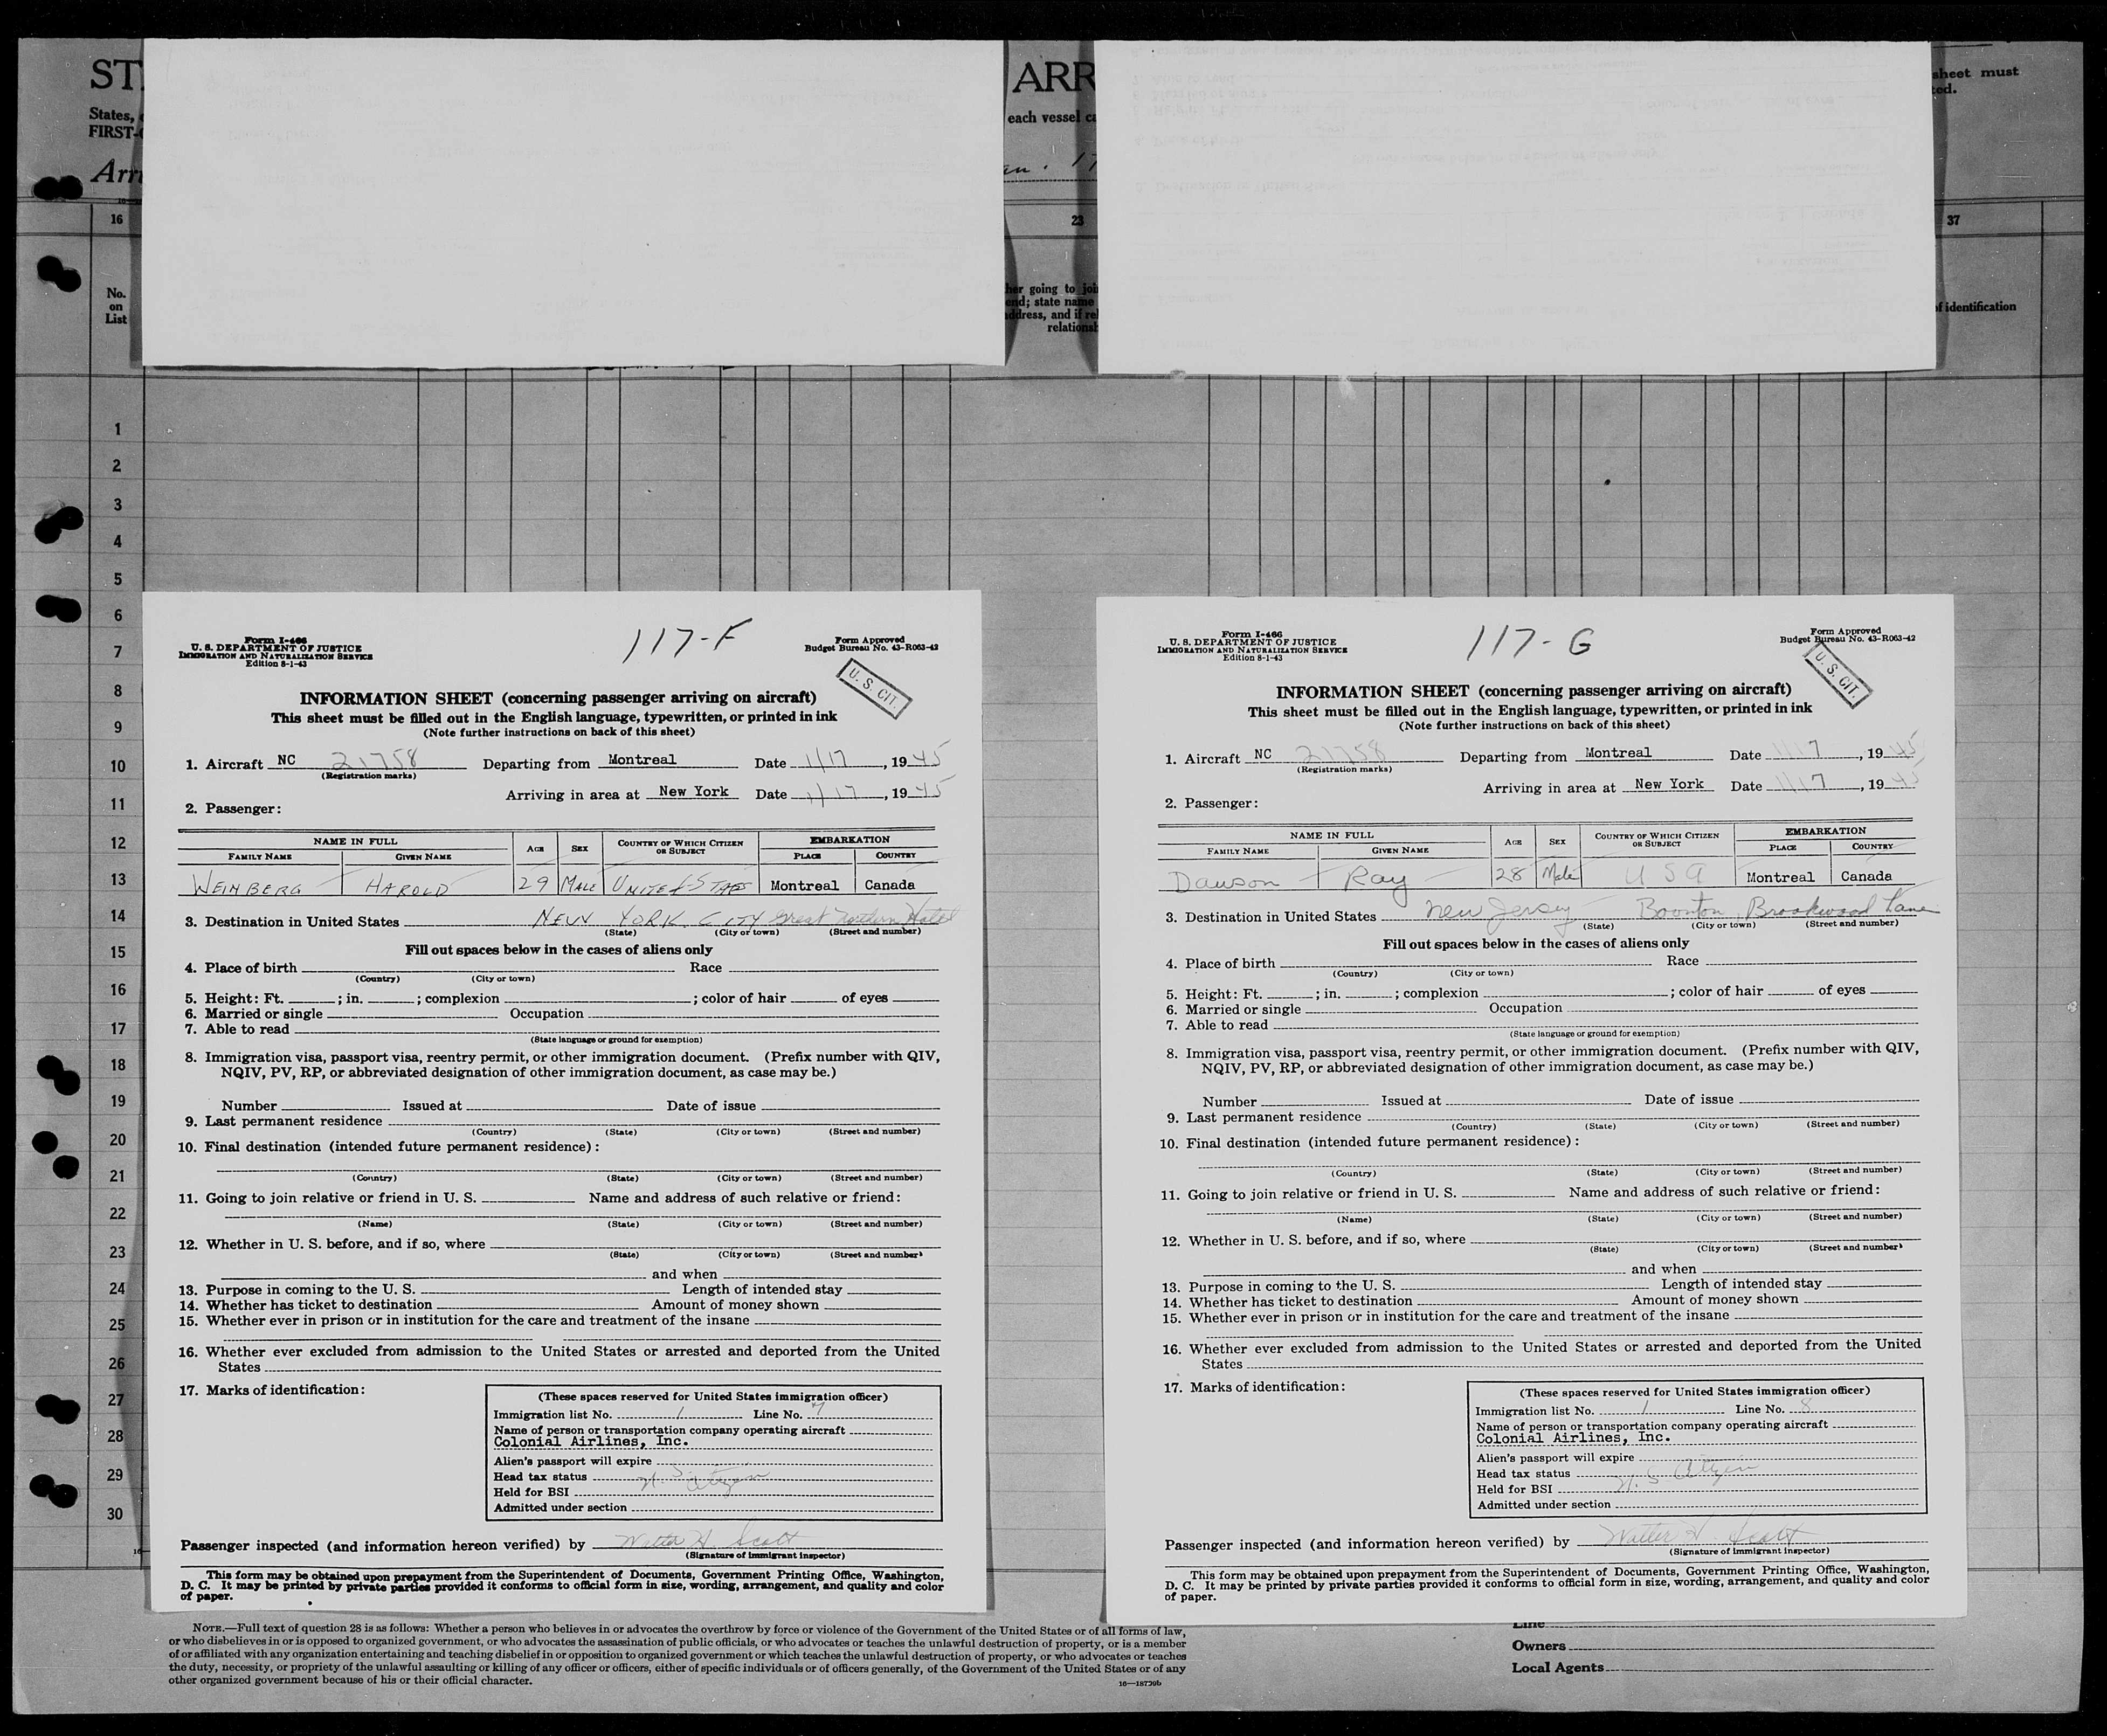 ST
ARR
sheet must
ted.
States,
FIRST-
each vessel
Arri
an. 17
16
23
37
No.
on
List
her going to joi
end; state name
address, and if rel
relationsh
of identification
1
2
3
4
5
6
7
8
9
10
11
12
13
14
15
16
17
18
19
20
21
22
23
24
25
26
27
28
29
30
Form I-466
U. S. DEPARTMENT OF JUSTICE
IMMIGRATION AND NATURALIZATION SERVICE
Edition 8-1-43
117-F
Form Approved
Budget Bureau No. 43-R063-42
U. S. CIT.
INFORMATION SHEET (concerning passenger arriving on aircraft)
This sheet must be filled out in the English language, typewritten, or printed in ink
(Note further instructions on back of this sheet)
1. Aircraft NC 21758 Departing from Montreal Date 1/17, 1945
(Registration marks)
Arriving in area at New York Date 1/17, 1945
2. Passenger:
NAME IN FULL AGE SEX COUNTRY OF WHICH CITIZEN OR SUBJECT EMBARKATION
FAMILY NAME GIVEN NAME PLACE COUNTRY
WEINBERG HAROLD 29 MALE UNITED STATES Montreal Canada
3. Destination in United States NEW YORK CITY Great Northern Hotel
(State) (City or town) (Street and number)
Fill out spaces below in the cases of aliens only
4. Place of birth Race
(Country) (City or town)
5. Height: Ft. ; in. ; complexion ; color of hair of eyes
6. Married or single Occupation
7. Able to read
(State language or ground for exemption)
8. Immigration visa, passport visa, reentry permit, or other immigration document. (Prefix number with QIV,
NQIV, PV, RP, or abbreviated designation of other immigration document, as case may be.)
Number Issued at Date of issue
9. Last permanent residence
(Country) (State) (City or town) (Street and number)
10. Final destination (intended future permanent residence):
(Country) (State) (City or town) (Street and number)
11. Going to join relative or friend in U. S. Name and address of such relative or friend:
(Name) (State) (City or town) (Street and number)
12. Whether in U. S. before, and if so, where
(State) (City or town) (Street and number)
and when
13. Purpose in coming to the U. S. Length of intended stay
14. Whether has ticket to destination Amount of money shown
15. Whether ever in prison or in institution for the care and treatment of the insane
16. Whether ever excluded from admission to the United States or arrested and deported from the United
States
17. Marks of identification:
(These spaces reserved for United States immigration officer)
Immigration list No. 1 Line No. 7
Name of person or transportation company operating aircraft
Colonial Airlines, Inc.
Alien's passport will expire
Head tax status U. S. Citizen
Held for BSI
Admitted under section
Passenger inspected (and information hereon verified) by Walter H. Scott
(Signature of immigrant inspector)
This form may be obtained upon prepayment from the Superintendent of Documents, Government Printing Office, Washington,
D. C. It may be printed by private parties provided it conforms to official form in size, wording, arrangement, and quality and color
of paper.
Form I-466
U. S. DEPARTMENT OF JUSTICE
IMMIGRATION AND NATURALIZATION SERVICE
Edition 8-1-43
117-G
Form Approved
Budget Bureau No. 43-R063-42
U. S. CIT.
INFORMATION SHEET (concerning passenger arriving on aircraft)
This sheet must be filled out in the English language, typewritten, or printed in ink
(Note further instructions on back of this sheet)
1. Aircraft NC 21758 Departing from Montreal Date 1/17, 1945
(Registration marks)
Arriving in area at New York Date 1/17, 1945
2. Passenger:
NAME IN FULL AGE SEX COUNTRY OF WHICH CITIZEN OR SUBJECT EMBARKATION
FAMILY NAME GIVEN NAME PLACE COUNTRY
Dawson Ray 28 Male USA Montreal Canada
3. Destination in United States New Jersey Boonton, Brookwood Lane
(State) (City or town) (Street and number)
Fill out spaces below in the cases of aliens only
4. Place of birth Race
(Country) (City or town)
5. Height: Ft. ; in. ; complexion ; color of hair of eyes
6. Married or single Occupation
7. Able to read
(State language or ground for exemption)
8. Immigration visa, passport visa, reentry permit, or other immigration document. (Prefix number with QIV,
NQIV, PV, RP, or abbreviated designation of other immigration document, as case may be.)
Number Issued at Date of issue
9. Last permanent residence
(Country) (State) (City or town) (Street and number)
10. Final destination (intended future permanent residence):
(Country) (State) (City or town) (Street and number)
11. Going to join relative or friend in U. S. Name and address of such relative or friend:
(Name) (State) (City or town) (Street and number)
12. Whether in U. S. before, and if so, where
(State) (City or town) (Street and number)
and when
13. Purpose in coming to the U. S. Length of intended stay
14. Whether has ticket to destination Amount of money shown
15. Whether ever in prison or in institution for the care and treatment of the insane
16. Whether ever excluded from admission to the United States or arrested and deported from the United
States
17. Marks of identification:
(These spaces reserved for United States immigration officer)
Immigration list No. 1 Line No. 8
Name of person or transportation company operating aircraft
Colonial Airlines, Inc.
Alien's passport will expire
Head tax status U. S. Citizen
Held for BSI
Admitted under section
Passenger inspected (and information hereon verified) by Walter H. Scott
(Signature of immigrant inspector)
This form may be obtained upon prepayment from the Superintendent of Documents, Government Printing Office, Washington,
D. C. It may be printed by private parties provided it conforms to official form in size, wording, arrangement, and quality and color
of paper.
NOTE.—Full text of question 28 is as follows: Whether a person who believes in or advocates the overthrow by force or violence of the Government of the United States or of all forms of law,
or who disbelieves in or is opposed to organized government, or who advocates the assassination of public officials, or who advocates or teaches the unlawful destruction of property, or is a member
of or affiliated with any organization entertaining and teaching disbelief in or opposition to organized government or which teaches the unlawful destruction of property, or who advocates or teaches
the duty, necessity, or propriety of the unlawful assaulting or killing of any officer or officers, either of specific individuals or of officers generally, of the Government of the United States or of any
other organized government because of his or their official character.
16—18729b
Line
Owners
Local Agents